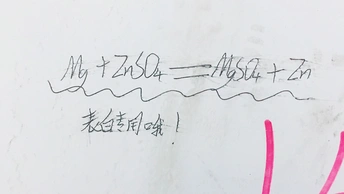 Mg + ZnSO4 = MgSO4 + Zn
表白专用哦！